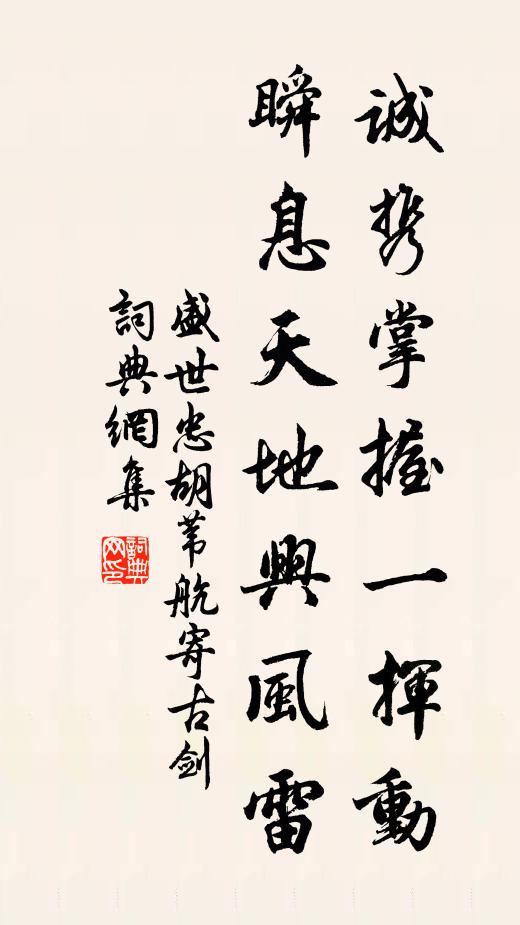 诚携掌握一揮動
瞬息天地興風雷
盛世忠胡苇航寄古剑
詞典網集
詞典网印